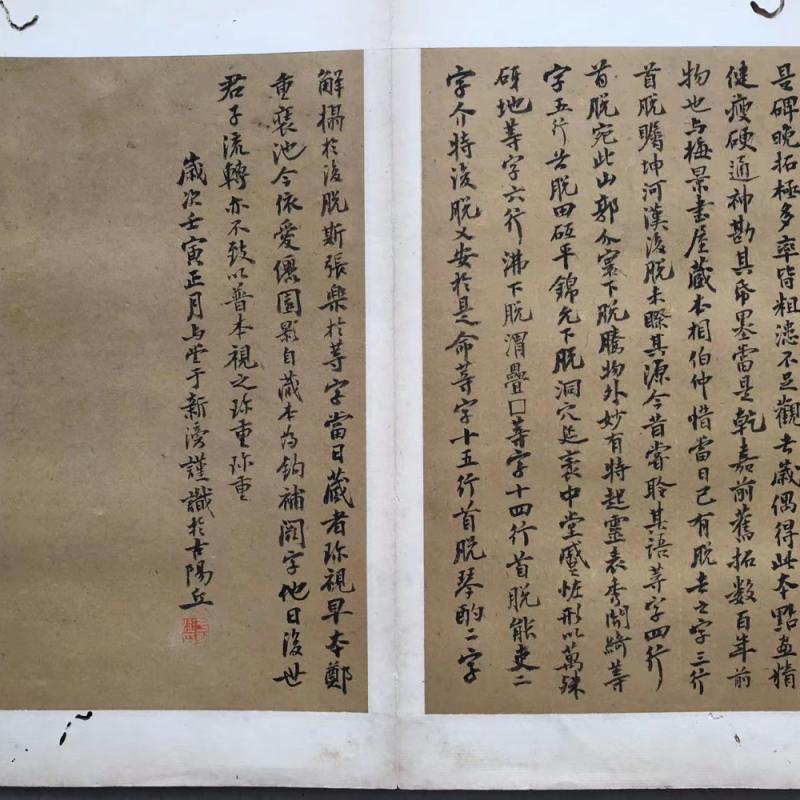 是碑晚拓極多率皆粗漶不足觀去歲偶得此本點畫精
健瘦硬通神勘其帋墨當是乾嘉前舊拓数百年前
物也与梅景書屋藏本相伯仲惜當日已有脱去之字三行
首脱矚坤河漢後脱未瞭其源今昔嘗聆其語等字四行
首脱宛此山郭介寰下脱騰物外妙有特起靈表秀閒綺等
字五行首脱田砥平錦先下脱洞穴延袤中堂盛怪形以萬殊
砑地等字六行沸下脱渭疊囗等字十四行首脱能吏二
字介特後脱又安於是命等字十五行首脱琴酌二字
解榻於後脱斯張樂於等字當日藏者珍視早本鄭
重裝池今依愛儷園影自藏本為鈎補闕字他日後世
君子流轉亦不致以普本視之珍重珍重
歲次壬寅正月与堂于新滂謹識於古陽丘